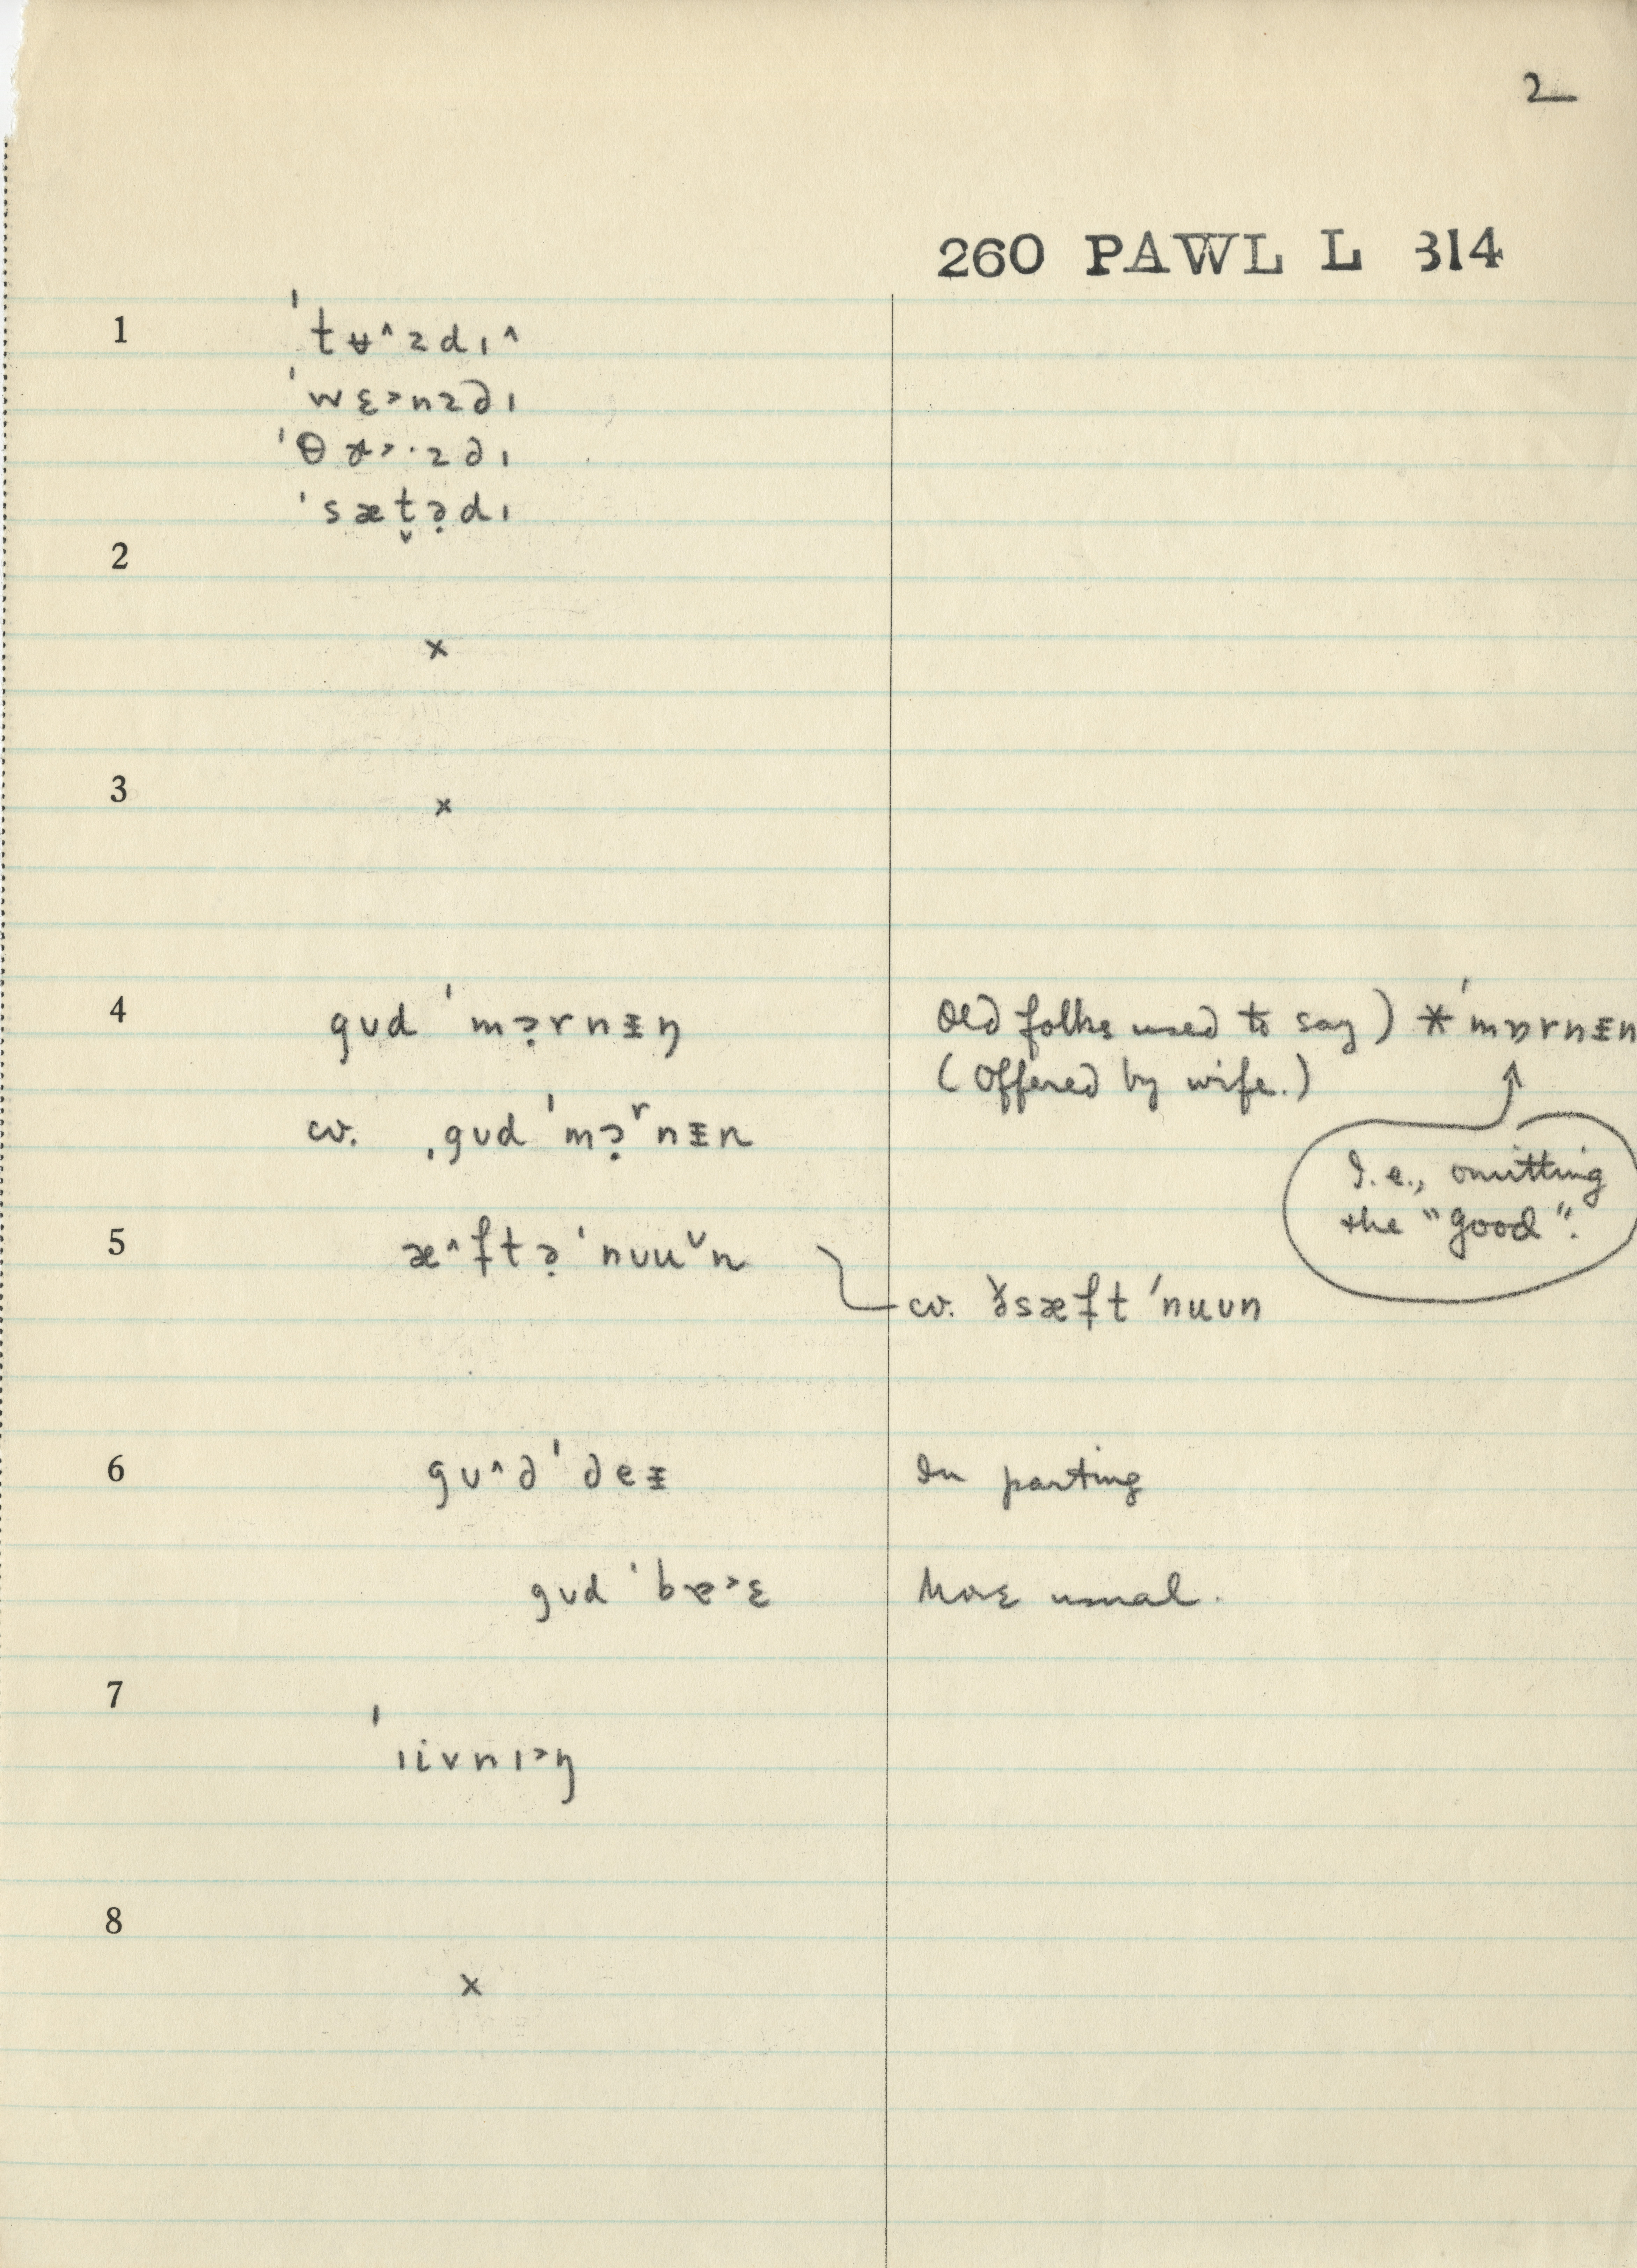 2
260 PAWL L 314
1 ˈtʉ^zdɪ^
ˈwɛ˃nzdɪ
ˈθɚ˃·zdɪ
ˈsæt̬ə̣dɪ
2
×
3
×
4 gʊd ˈmɔ̣rnᵻŋ Old folks used to say) * ˈmɒrnᵻn
(Offered by wife.)
cv. ˌgʊd ˈmɔ̣ʳnᵻn
I.e., omitting
the "good".
5 æ^ftə̣ ˈnʊu˅n
cv. ðɪsæft ˈnuʊn
6 gʊ^d ˈdeᵻ In parting
gʊd ˈbɐ˃ɛ More usual.
7 ˈɪivnɪ˃ŋ
8
×